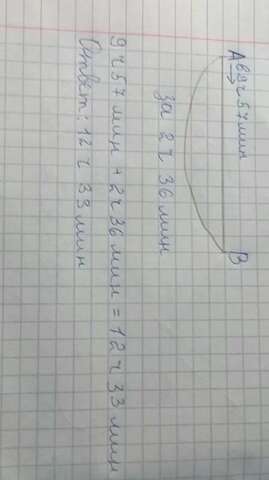 А в 9ч 57мин
В
за 2ч 36мин
9ч57мин + 2ч36мин = 12ч 33мин
Ответ: 12ч 33мин